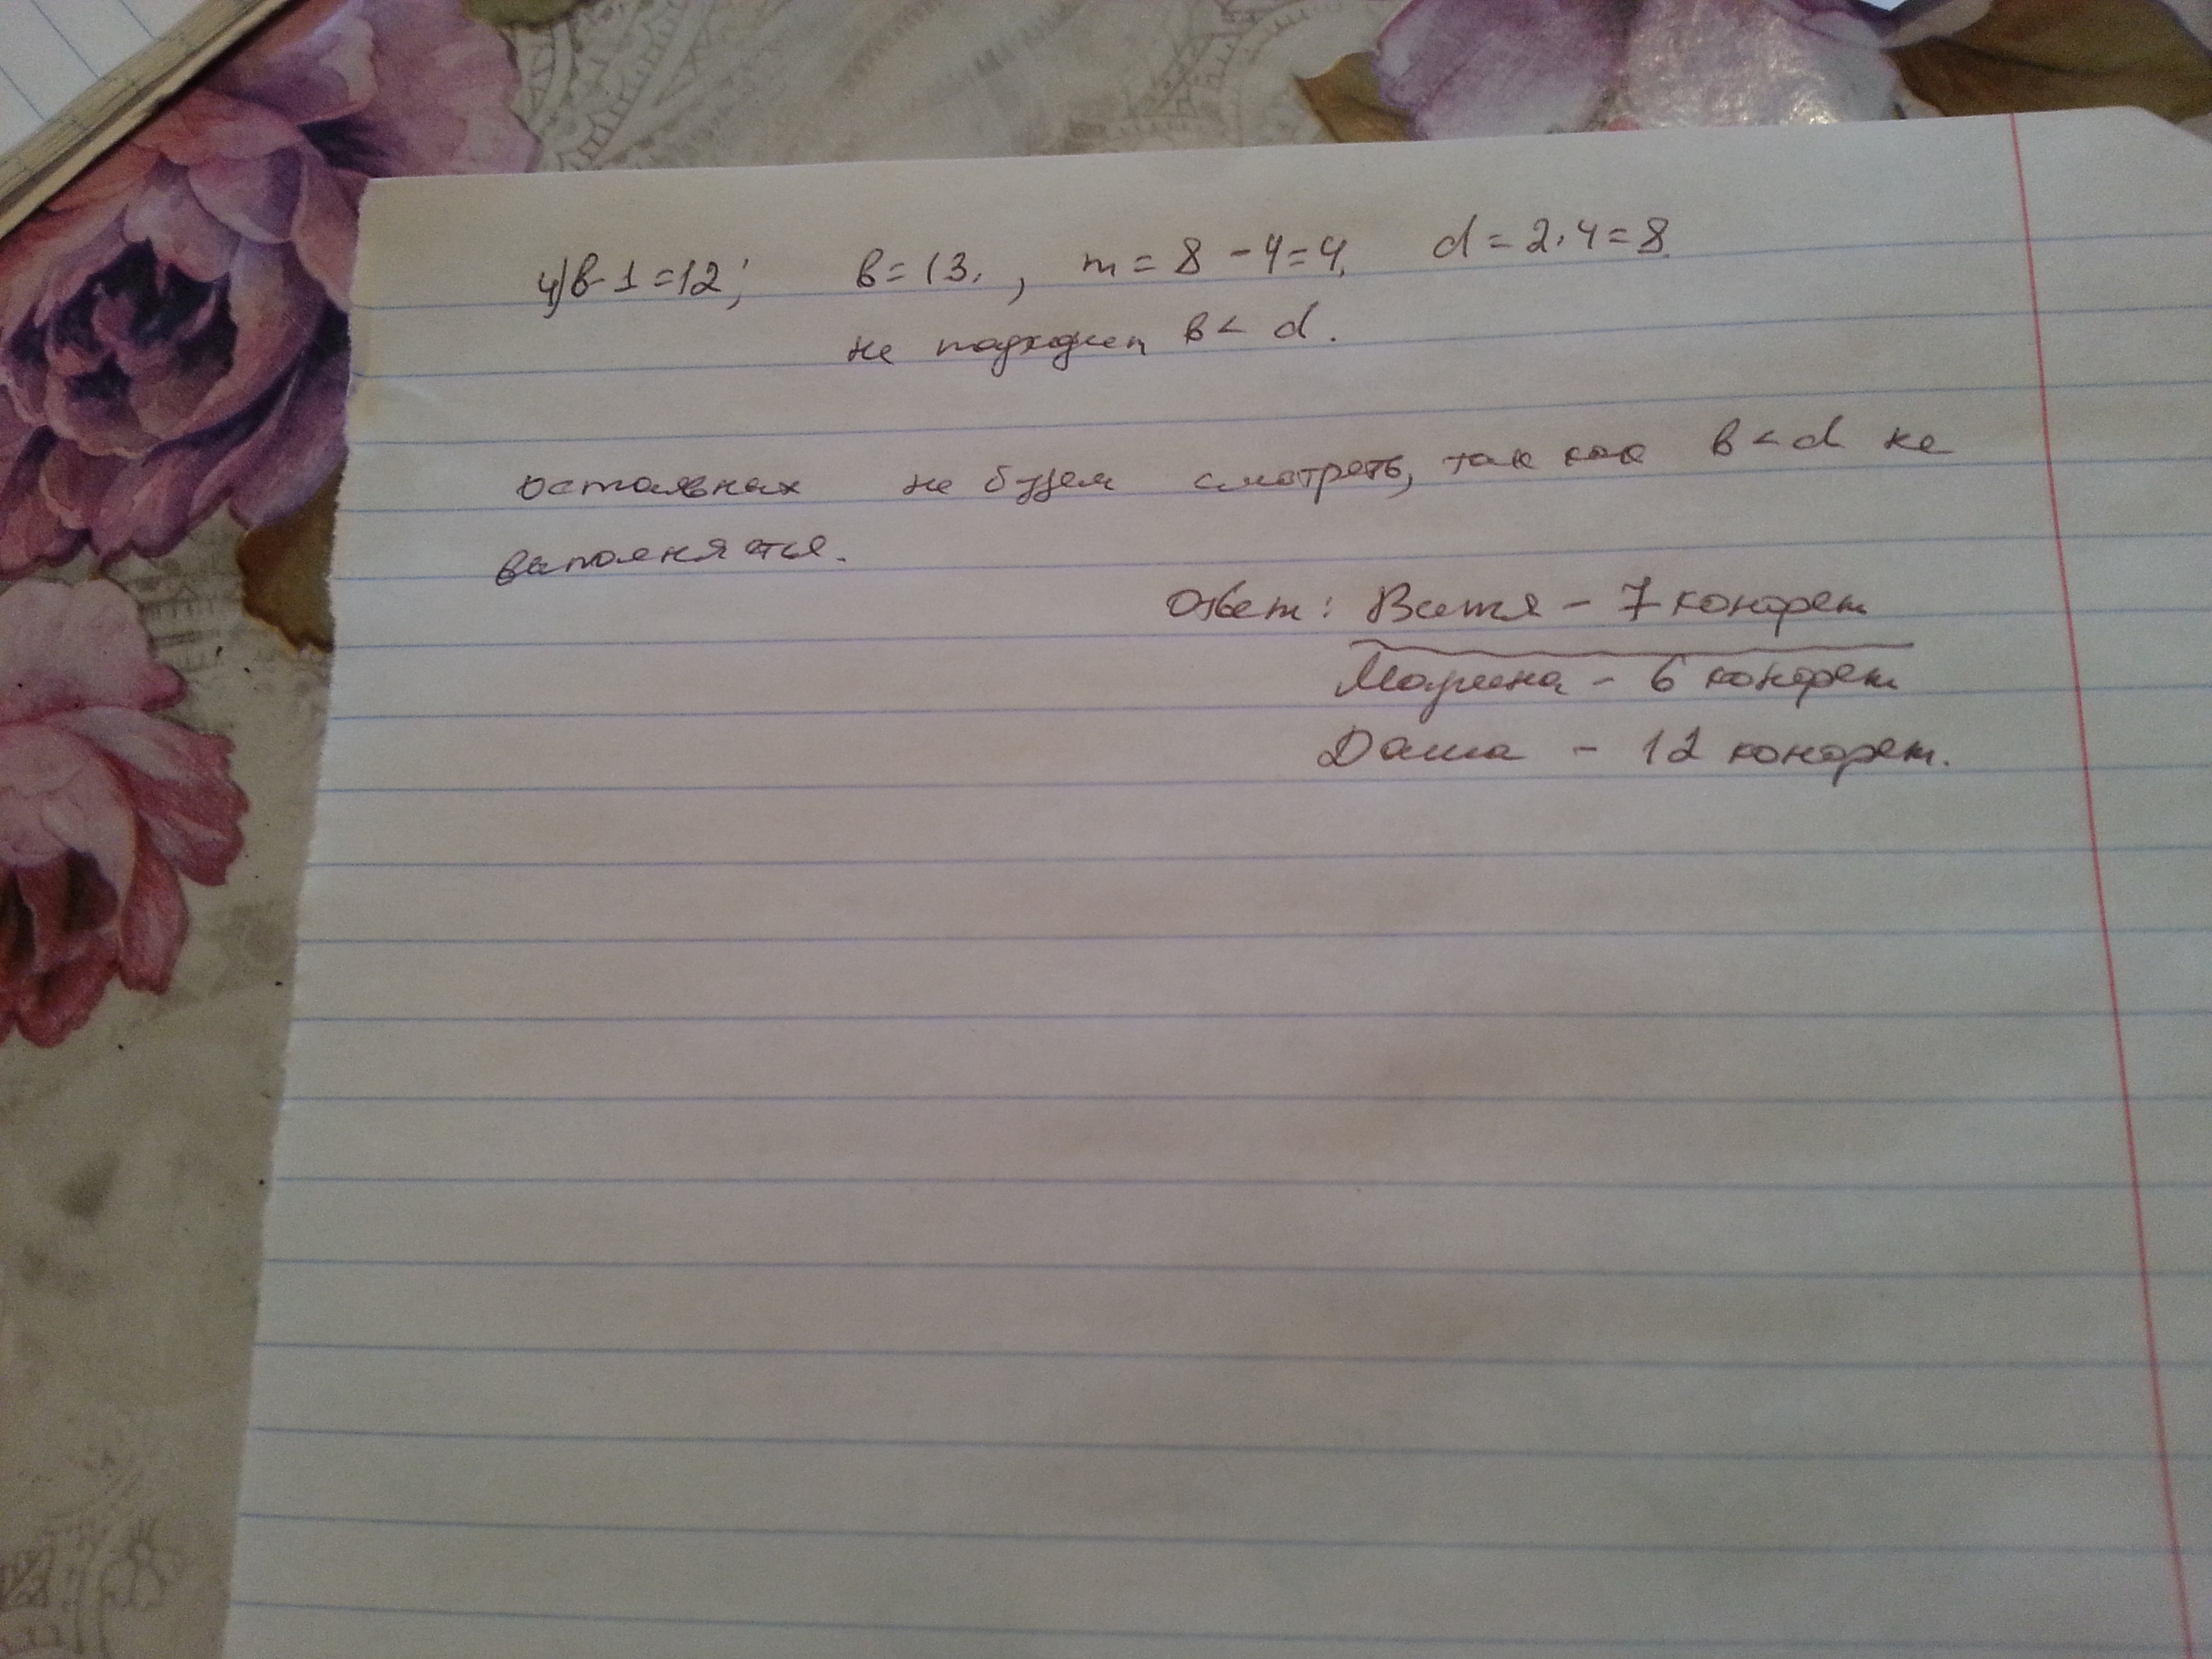 4) в-1=12; в=13. , m=8-4=4. d=2·4=8.
не подходит в< d.
остальных не будем смотреть, так как в<d не
выполнятся.
Ответ: Витя - 7 конфет
Марина - 6 конфет
Даша - 12 конфет.